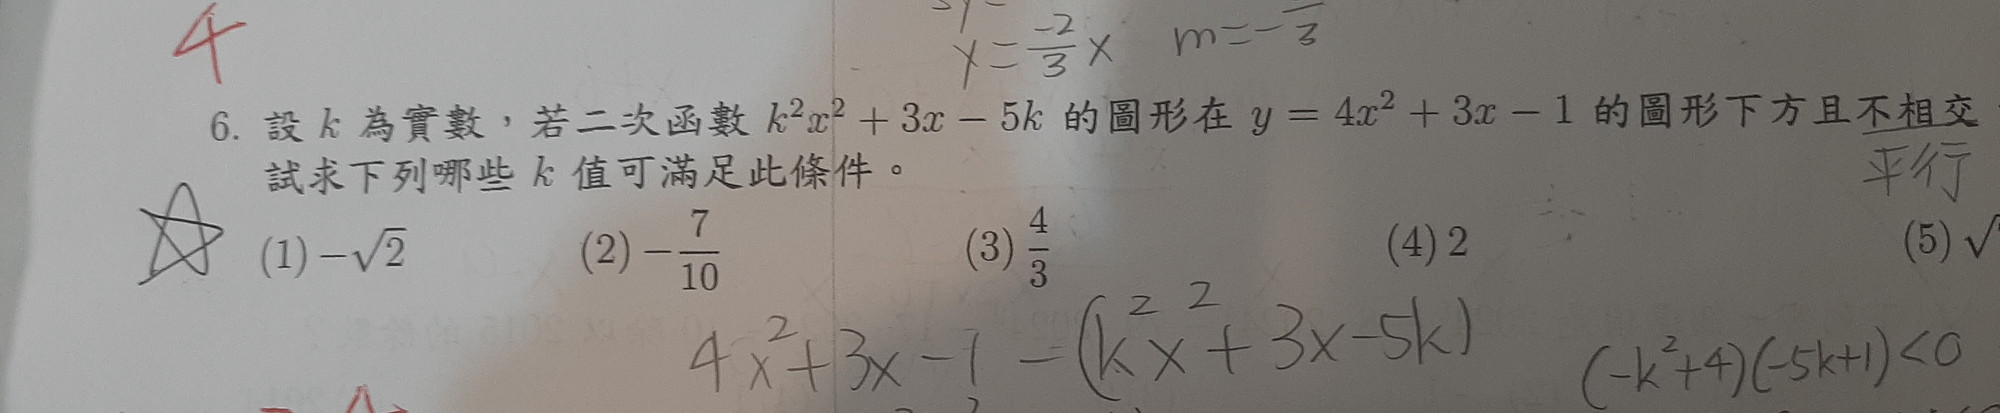 4
y = \frac{-2}{3}x m = -\frac{}{3}
6. 設 k 為實數，若二次函數 k²x² + 3x − 5k 的圖形在 y = 4x² + 3x − 1 的圖形下方且不相交
平行
試求下列哪些 k 值可滿足此條件。
(1) −√2 (2) −\frac{7}{10} (3) \frac{4}{3} (4) 2 (5) √
4x² + 3x − 1 − (k²x² + 3x − 5k) (−k² + 4)(−5k + 1) < 0